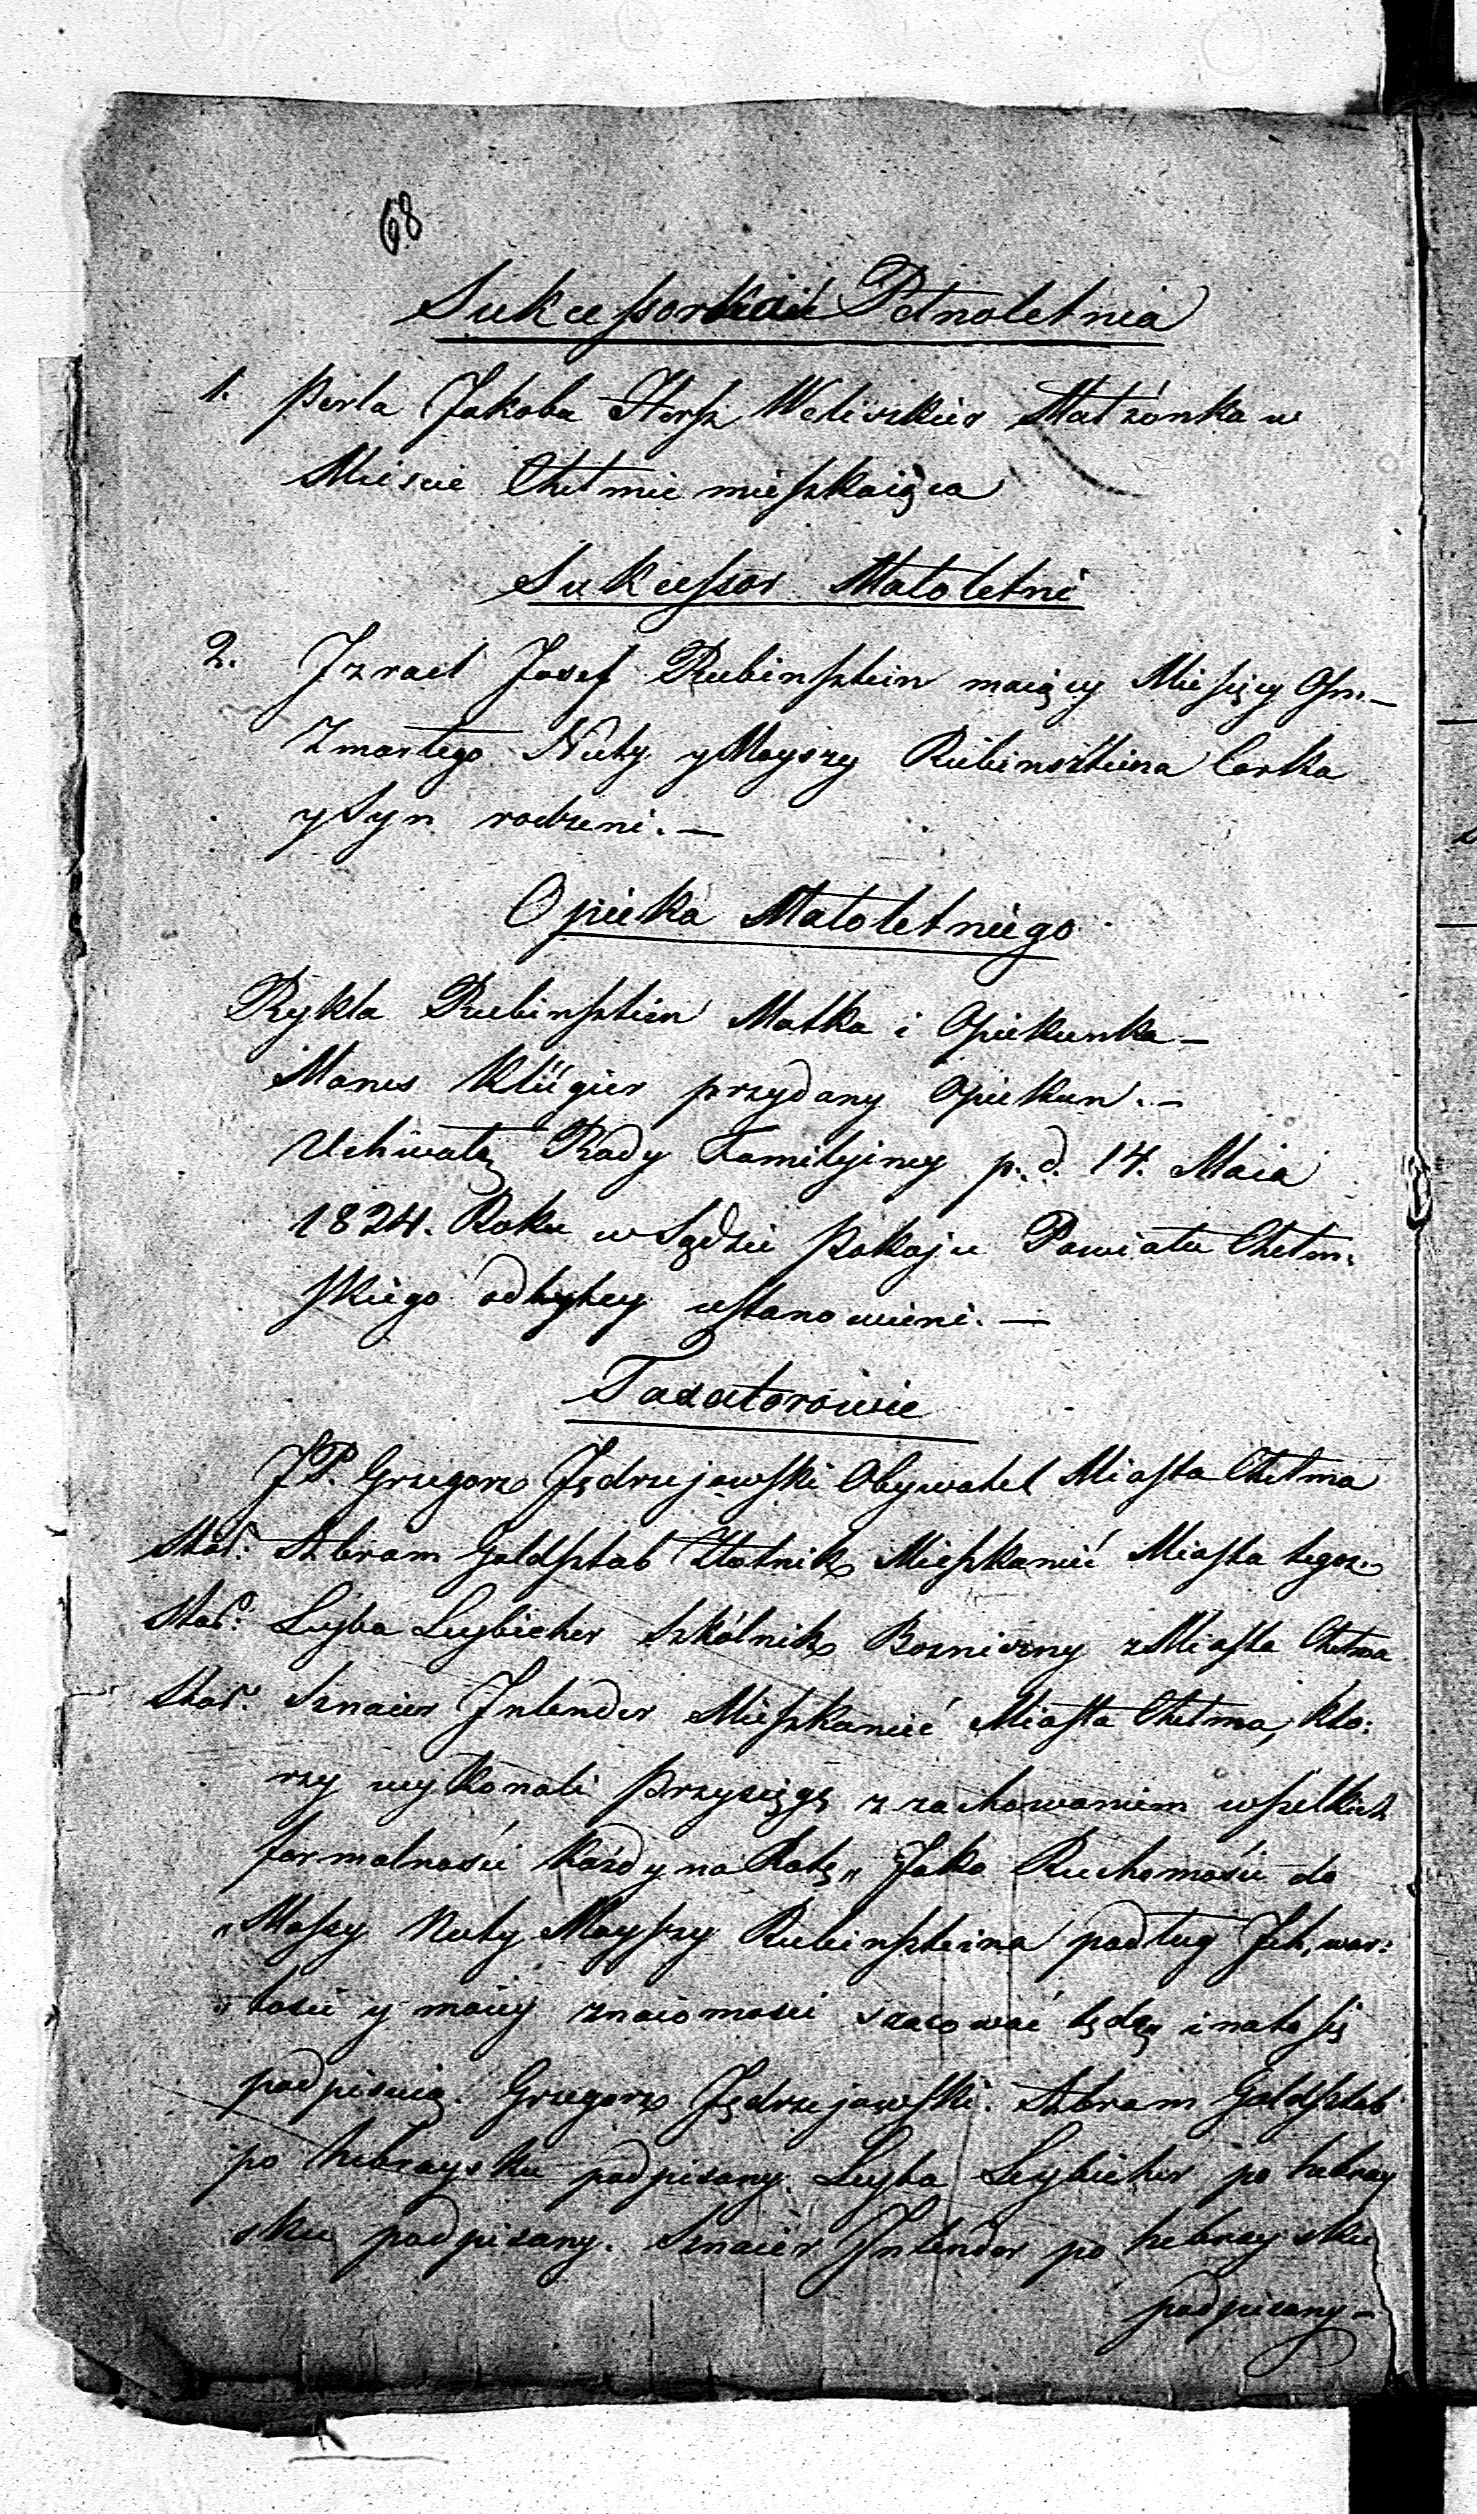 68
Sukcessorka Pełnoletnia
1. Perla Jakoba Hersz Weliszkier Małżonka w
Mieście Chełmie mieszkaiąca
Sukcessor Małoletni
2. Izrael Josef Rubinsztein maiący Miesięcy Ośm. —
Zmarłego Nuty y Moyszy Rubinszteina Corka
y Syn rodzeni. —
Opieka Małoletniego
Rykla Rubinsztein Matka i Opiekunka —
Manes Klügier przydany Opiekun. —
Uchwałą Rady Familyiney p. d. 14. Maia
1824. Roku w Sądzie Pokoju Powiatu Chełm:
skiego odbytey ustanowieni. —
Taxatorowie
JP. Grzegorz Jędrzejowski Obywatel Miasta Chełma
Star: Abram Goldsztab Złotnik Mieszkaniec Miasta tegoż
Star: Leyba Leybicher Szkólnik Bozniczny z Miasta Chełma
Star: Sznaier Inlender Mieszkaniec Miasta Chełma, któ:
rzy wykonali Przysięgę z zachowaniem wszelkich
formalności każdy na Rotę „ Jako Ruchomości do
„ Massy Nuty Moyszy Rubinszteina podług Jch, war:
„ tości y moiey znaiomości szacować będę i na to się
podpisuią. Grzegorz Jędrzejowski. Abram Goldsztab
po hebraysku podpisany. Leyba Leybicher po hebray
sku podpisany. Sznaier Inlender po hebraysku
podpisany —